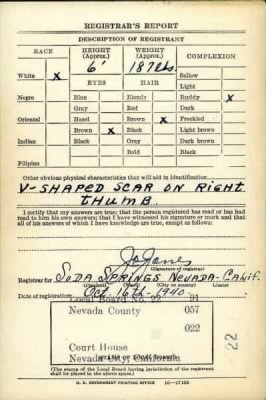 REGISTRAR'S REPORT
DESCRIPTION OF REGISTRANT
RACE HEIGHT (Approx.) WEIGHT (Approx.) COMPLEXION
White X 6' 187 lbs. Sallow
EYES HAIR Light
Negro Blue Blonde Ruddy X
Gray Red Dark
Oriental Hazel Brown X Freckled
Brown X Black Light brown
Indian Black Gray Dark brown
Bald Black
Filipino
Other obvious physical characteristics that will aid in identification
V-SHAPED SCAR ON RIGHT
THUMB.
I certify that my answers are true; that the person registered has read or has had
read to him his own answers; that I have witnessed his signature or mark and that
all of his answers of which I have knowledge are true, except as follows:
(Signature of registrar)
Registrar for SODA SPRINGS NEVADA-CALIF.
(City or county) (State)
Date of registration Oct 16th-1940
Local Board No. 91
Nevada County 057
022
Court House
Nevada City, California
(The stamp of the Local Board having jurisdiction of the registrant
shall be placed in the above space)
U. S. GOVERNMENT PRINTING OFFICE 16-17105
22